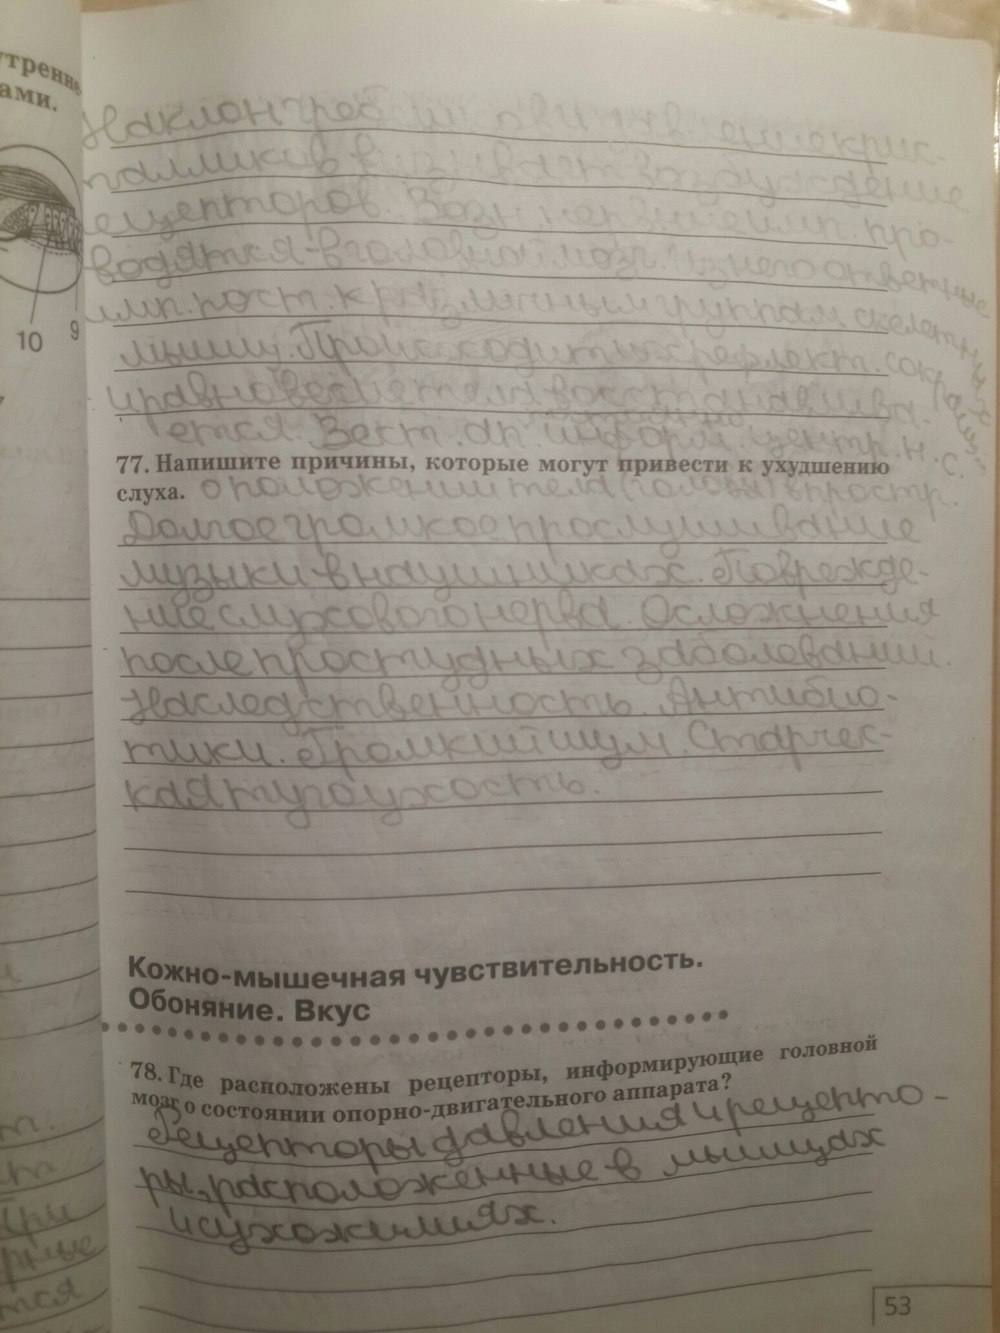 утренне
ами.
10
9
Наклон греб и
крис-
талликов вызывает возбуждение
рецепторов. Возн. нервные имп. про-
водятся в головной мозг. Из него ответные
имп. пост. к различным группам скелетных
мышц. Происходит их рефлект. сокращ.
и равновесие тела восстанавлива-
ется. Вест. ап. информ. центр. н. с.
77. Напишите причины, которые могут привести к ухудшению
слуха. о положении тела (головы) в простр.
Долгое громкое прослушивание
музыки в наушниках. Поврежде-
ние слухового нерва. Осложнения
после простудных заболеваний.
Наследственность. Антибио-
тики. Громкий шум. Старчес-
кая тугоухость.
Кожно-мышечная чувствительность.
Обоняние. Вкус
78. Где расположены рецепторы, информирующие головной
мозг о состоянии опорно-двигательного аппарата?
Рецепторы давления и рецепто-
ры, расположенные в мышцах
и сухожилиях.
53